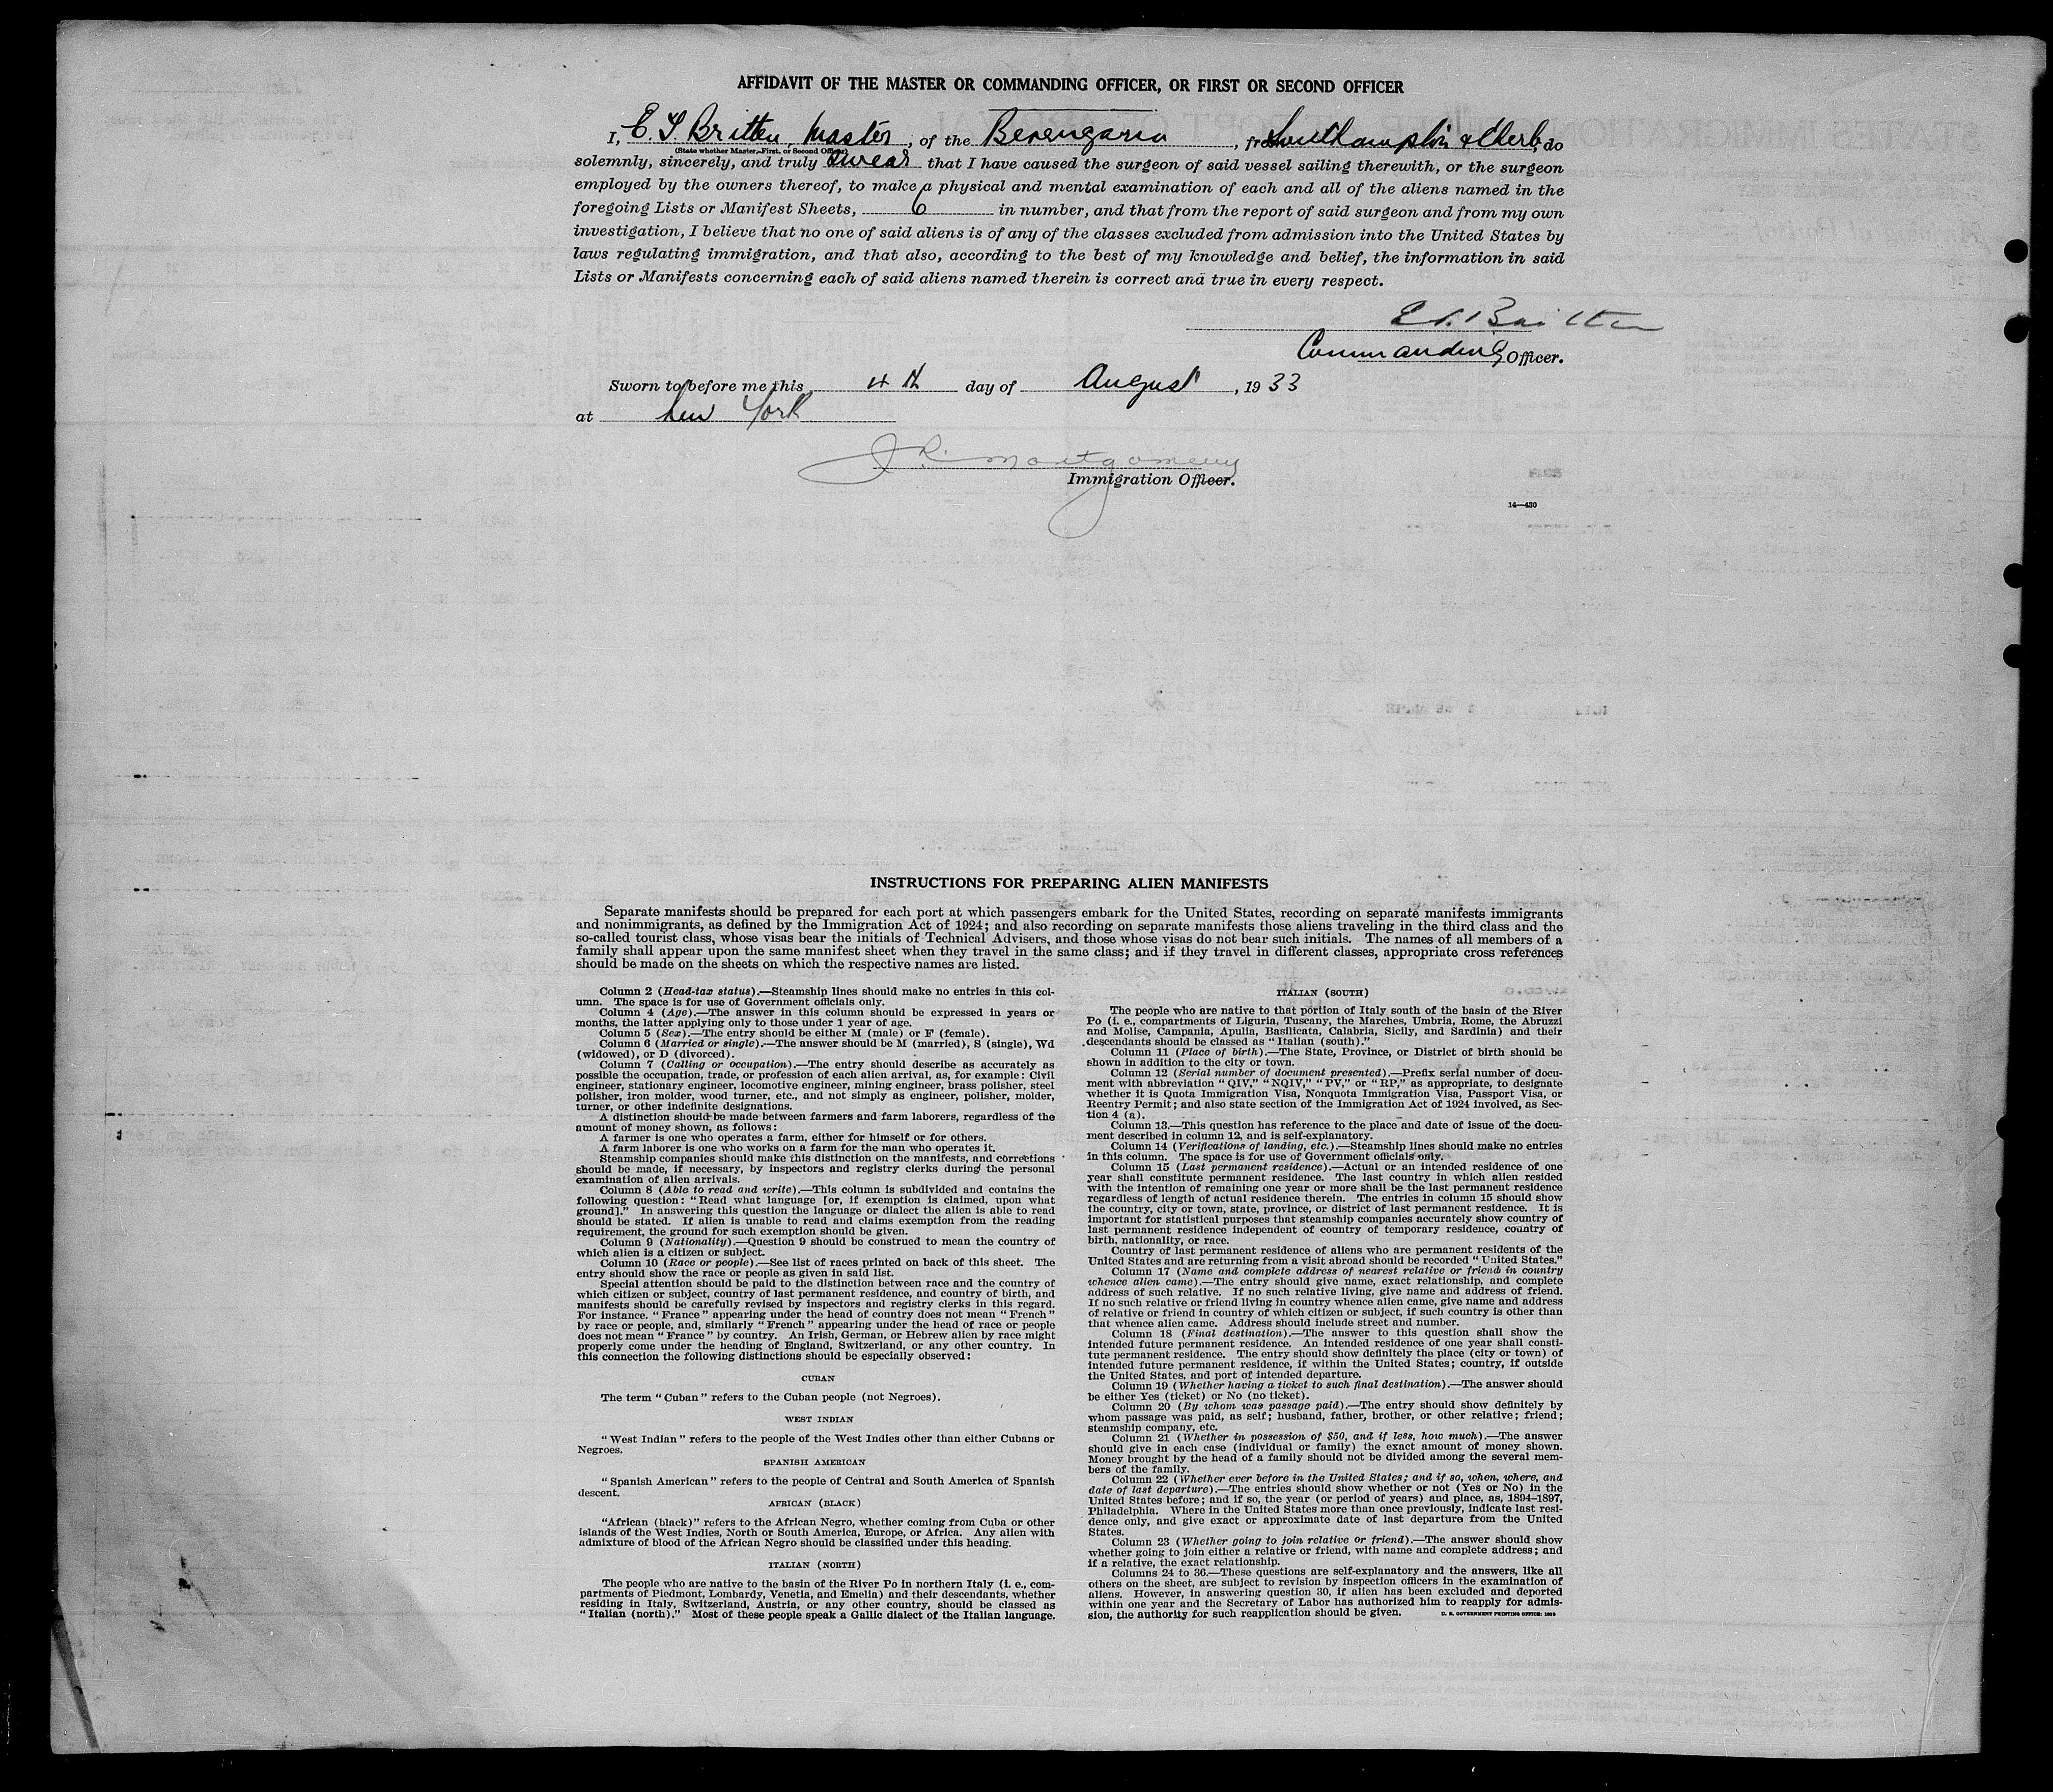 AFFIDAVIT OF THE MASTER OR COMMANDING OFFICER, OR FIRST OR SECOND OFFICER
I, E. T. Britten, Master, of the Berengaria, from Southampton & Cherb, do
(State whether Master, First, or Second Officer)
solemnly, sincerely, and truly swear that I have caused the surgeon of said vessel sailing therewith, or the surgeon
employed by the owners thereof, to make a physical and mental examination of each and all of the aliens named in the
foregoing Lists or Manifest Sheets, 6 in number, and that from the report of said surgeon and from my own
investigation, I believe that no one of said aliens is of any of the classes excluded from admission into the United States by
laws regulating immigration, and that also, according to the best of my knowledge and belief, the information in said
Lists or Manifests concerning each of said aliens named therein is correct and true in every respect.
Britten
Commanding Officer.
Sworn to before me this 4th day of August, 1933
at New York
J R. Montgomery
Immigration Officer.
14—430
INSTRUCTIONS FOR PREPARING ALIEN MANIFESTS
Separate manifests should be prepared for each port at which passengers embark for the United States, recording on separate manifests immigrants
and nonimmigrants, as defined by the Immigration Act of 1924; and also recording on separate manifests those aliens traveling in the third class and the
so-called tourist class, whose visas bear the initials of Technical Advisers, and those whose visas do not bear such initials. The names of all members of a
family shall appear upon the same manifest sheet when they travel in the same class; and if they travel in different classes, appropriate cross references
should be made on the sheets on which the respective names are listed.
Column 2 (Head-tax status).—Steamship lines should make no entries in this col-
umn. The space is for use of Government officials only.
Column 4 (Age).—The answer in this column should be expressed in years or
months, the latter applying only to those under 1 year of age.
Column 5 (Sex).—The entry should be either M (male) or F (female).
Column 6 (Married or single).—The answer should be M (married), S (single), Wd
(widowed), or D (divorced).
Column 7 (Calling or occupation).—The entry should describe as accurately as
possible the occupation, trade, or profession of each alien arrival, as, for example: Civil
engineer, stationary engineer, locomotive engineer, mining engineer, brass polisher, steel
polisher, iron molder, wood turner, etc., and not simply as engineer, polisher, molder,
turner, or other indefinite designations.
A distinction should be made between farmers and farm laborers, regardless of the
amount of money shown, as follows:
A farmer is one who operates a farm, either for himself or for others.
A farm laborer is one who works on a farm for the man who operates it.
Steamship companies should make this distinction on the manifests, and corrections
should be made, if necessary, by inspectors and registry clerks during the personal
examination of alien arrivals.
Column 8 (Able to read and write).—This column is subdivided and contains the
following question: "Read what language [or, if exemption is claimed, upon what
ground]." In answering this question the language or dialect the alien is able to read
should be stated. If alien is unable to read and claims exemption from the reading
requirement, the ground for such exemption should be given.
Column 9 (Nationality).—Question 9 should be construed to mean the country of
which alien is a citizen or subject.
Column 10 (Race or people).—See list of races printed on back of this sheet. The
entry should show the race or people as given in said list.
Special attention should be paid to the distinction between race and the country of
which citizen or subject, country of last permanent residence, and country of birth, and
manifests should be carefully revised by inspectors and registry clerks in this regard.
For instance. "France" appearing under the head of country does not mean "French"
by race or people, and, similarly "French" appearing under the head of race or people
does not mean "France" by country. An Irish, German, or Hebrew alien by race might
properly come under the heading of England, Switzerland, or any other country. In
this connection the following distinctions should be especially observed:
CUBAN
The term "Cuban" refers to the Cuban people (not Negroes).
WEST INDIAN
"West Indian" refers to the people of the West Indies other than either Cubans or
Negroes.
SPANISH AMERICAN
"Spanish American" refers to the people of Central and South America of Spanish
descent.
AFRICAN (BLACK)
"African (black)" refers to the African Negro, whether coming from Cuba or other
islands of the West Indies, North or South America, Europe, or Africa. Any alien with
admixture of blood of the African Negro should be classified under this heading.
ITALIAN (NORTH)
The people who are native to the basin of the River Po in northern Italy (i. e., com-
partments of Piedmont, Lombardy, Venetia, and Emelia) and their descendants, whether
residing in Italy, Switzerland, Austria, or any other country, should be classed as
"Italian (north)." Most of these people speak a Gallic dialect of the Italian language.
ITALIAN (SOUTH)
The people who are native to that portion of Italy south of the basin of the River
Po (i. e., compartments of Liguria, Tuscany, the Marches, Umbria, Rome, the Abruzzi
and Molise, Campania, Apulia, Basilicata, Calabria, Sicily, and Sardinia) and their
descendants should be classed as "Italian (south)."
Column 11 (Place of birth).—The State, Province, or District of birth should be
shown in addition to the city or town.
Column 12 (Serial number of document presented).—Prefix serial number of docu-
ment with abbreviation "QIV," "NQIV," "PV," or "RP," as appropriate, to designate
whether it is Quota Immigration Visa, Nonquota Immigration Visa, Passport Visa, or
Reentry Permit; and also state section of the Immigration Act of 1924 involved, as Sec-
tion 4 (a).
Column 13.—This question has reference to the place and date of issue of the docu-
ment described in column 12, and is self-explanatory.
Column 14 (Verifications of landing, etc.).—Steamship lines should make no entries
in this column. The space is for use of Government officials only.
Column 15 (Last permanent residence).—Actual or an intended residence of one
year shall constitute permanent residence. The last country in which alien resided
with the intention of remaining one year or more shall be the last permanent residence
regardless of length of actual residence therein. The entries in column 15 should show
the country, city or town, state, province, or district of last permanent residence. It is
important for statistical purposes that steamship companies accurately show country of
last permanent residence independent of country of temporary residence, country of
birth, nationality, or race.
Country of last permanent residence of aliens who are permanent residents of the
United States and are returning from a visit abroad should be recorded "United States."
Column 17 (Name and complete address of nearest relative or friend in country
whence alien came).—The entry should give name, exact relationship, and complete
address of such relative. If no such relative living, give name and address of friend.
If no such relative or friend living in country whence alien came, give name and address
of relative or friend in country of which citizen or subject, if such country is other than
that whence alien came. Address should include street and number.
Column 18 (Final destination).—The answer to this question shall show the
intended future permanent residence. An intended residence of one year shall consti-
tute permanent residence. The entry should show definitely the place (city or town) of
intended future permanent residence, if within the United States; country, if outside
the United States, and port of intended departure.
Column 19 (Whether having a ticket to such final destination).—The answer should
be either Yes (ticket) or No (no ticket).
Column 20 (By whom was passage paid).—The entry should show definitely by
whom passage was paid, as self; husband, father, brother, or other relative; friend;
steamship company, etc.
Column 21 (Whether in possession of $50, and if less, how much).—The answer
should give in each case (individual or family) the exact amount of money shown.
Money brought by the head of a family should not be divided among the several mem-
bers of the family.
Column 22 (Whether ever before in the United States; and if so, when, where, and
date of last departure).—The entries should show whether or not (Yes or No) in the
United States before; and if so, the year (or period of years) and place, as, 1894–1897,
Philadelphia. Where in the United States more than once previously, indicate last resi-
dence only, and give exact or approximate date of last departure from the United
States.
Column 23 (Whether going to join relative or friend).—The answer should show
whether going to join either a relative or friend, with name and complete address; and
if a relative, the exact relationship.
Columns 24 to 36.—These questions are self-explanatory and the answers, like all
others on the sheet, are subject to revision by inspection officers in the examination of
aliens. However, in answering question 30, if alien has been excluded and deported
within one year and the Secretary of Labor has authorized him to reapply for admis-
sion, the authority for such reapplication should be given.
U. S. GOVERNMENT PRINTING OFFICE: